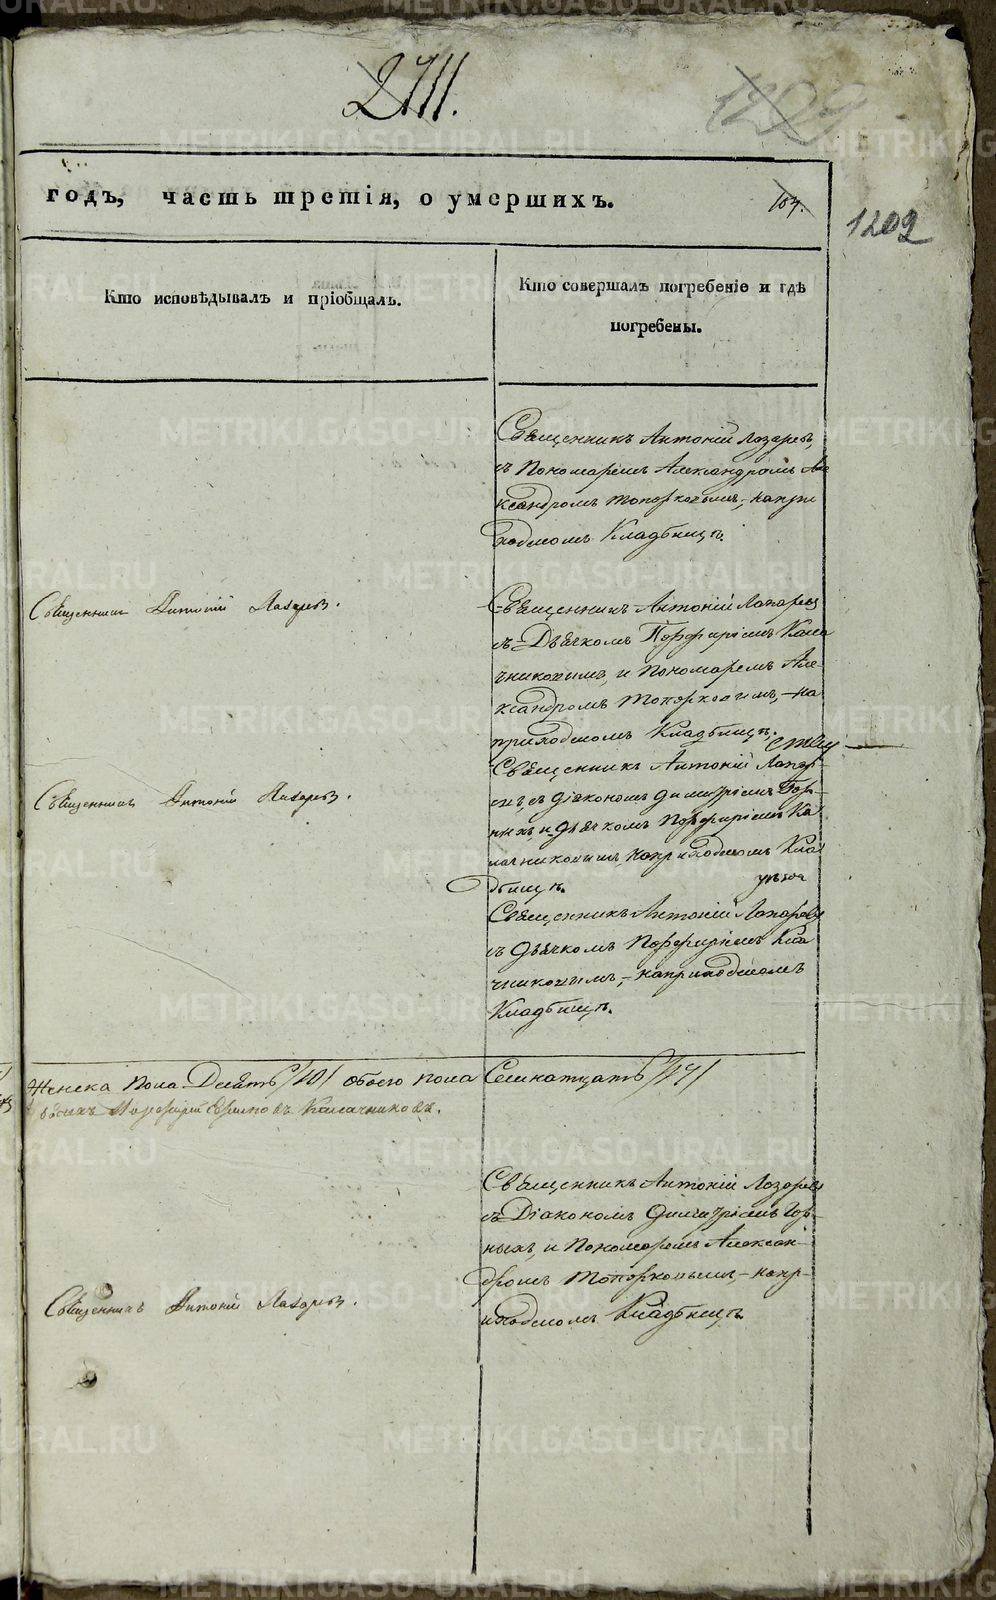 2711.
1229
годъ, часть третія, о умершихъ.
107.
1202
Кто исповѣдывалъ и пріобщалъ.
Кто совершалъ погребеніе и гдѣ
погребены.
Священникъ Антоній Лазаревъ
съ Пономаремъ Александромъ Але
ксандромъ Топорковымъ, на при
ходскомъ Кладбищѣ.
Священникъ Антоній Лазаревъ.
Священникъ Антоній Лазаревъ
съ Дьячкомъ Порфиріемъ Кала
чниковымъ, и Пономаремъ Але-
ксандромъ Топорковымъ, на
приходскомъ Кладбищѣ.
Священникъ Антоній Лазаревъ.
Священникъ Антоній Лазар-
евъ, съ діакономъ Димитріемъ Гор-
ныхъ, и дьячкомъ Порфиріемъ Ка
лачниковымъ, на приходскомъ Кла
дбищѣ.
Священникъ Антоній Лазаревъ
съ дьячкомъ Порфиріемъ Кала
чниковымъ, на приходскомъ
Кладбищѣ.
Женска пола Десять /10/ обоего пола Семнатцать /17/
Порфирій Калачниковъ.
Священникъ Антоній Лазаревъ
съ Діакономъ Димитріемъ Гор-
ныхъ, и Пономаремъ Алексан-
дромъ Топорковымъ, на пр-
иходскомъ Кладбищѣ.
Священникъ Антоній Лазаревъ.
METRIKI.GASO-URAL.RU